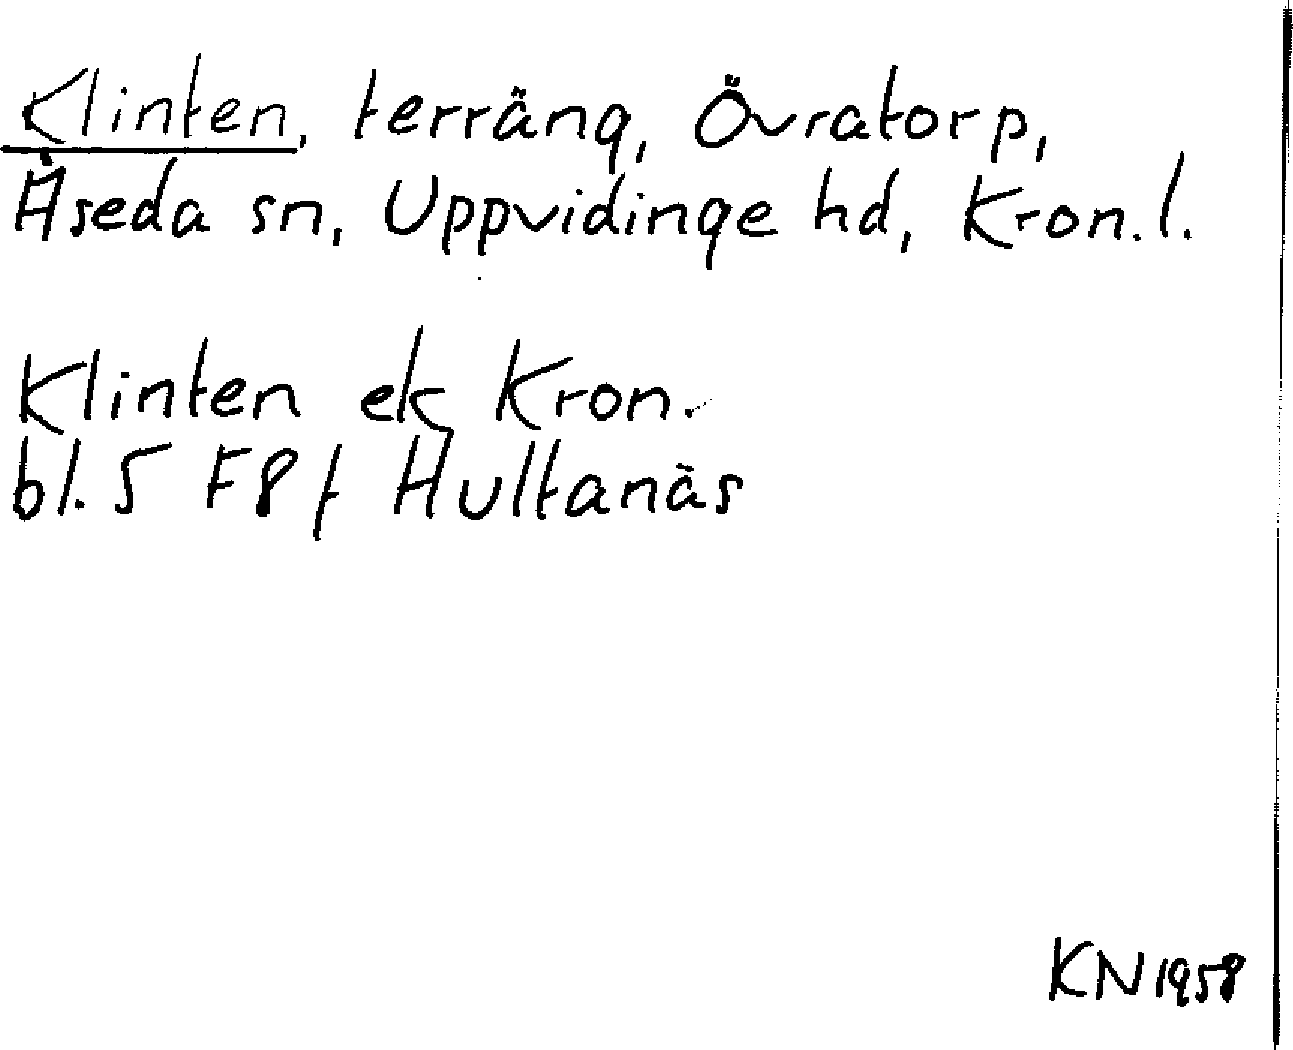 Klinten, terräng, Övratorp,
Åseda sn, Uppvidinge hd, Kron.l.
Klinten ek Kron.
bl. 5 F8f Hultanäs
KN 1958